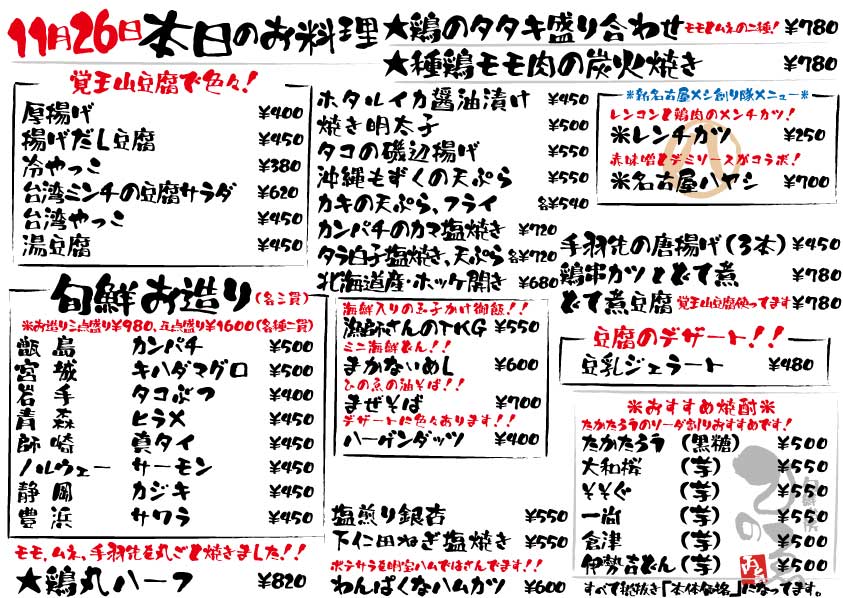 11月26日 本日のお料理
★鶏のタタキ盛り合わせ モモとムネの二種! ¥780
★種鶏モモ肉の炭火焼き ¥780
覚王山豆腐で色々!
厚揚げ ¥400
揚げだし豆腐 ¥450
冷やっこ ¥380
台湾ミンチの豆腐サラダ ¥620
台湾やっこ ¥450
湯豆腐 ¥450
ホタルイカ醤油漬け ¥450
焼き明太子 ¥500
タコの磯辺揚げ ¥550
沖縄もずくの天ぷら ¥550
カキの天ぷら、フライ 各¥540
カンパチのカマ塩焼き ¥720
タラ白子塩焼き、天ぷら 各¥720
北海道産・ホッケ開き ¥680
※新名古屋メシ創り隊メニュー※
レンコンと鶏肉のメンチカツ!
※レンチカツ ¥250
赤味噌とデミソースがコラボ!
※名古屋ハヤシ ¥700
手羽先の唐揚げ(3本) ¥450
鶏串カツとどて煮 ¥780
どて煮豆腐 覚王山豆腐使ってます ¥780
旬鮮お造り(各三貫)
※お造り三点盛り¥980、五点盛り¥1600(各種二貫)
甑島 カンパチ ¥500
宮城 キハダマグロ ¥500
岩手 タコぶつ ¥400
青森 ヒラメ ¥450
師崎 真タイ ¥450
ノルウェー サーモン ¥450
静岡 カジキ ¥450
豊浜 サワラ ¥450
海鮮入りの玉子かけ御飯!!
漁師さんのTKG ¥550
ミニ海鮮どん!!
まかないめし ¥600
ひの魚の油そば!!
まぜそば ¥700
デザートに色々あります!!
ハーゲンダッツ ¥400
豆腐のデザート!!
豆乳ジェラート ¥480
※おすすめ焼酎※
たかたろうのソーダ割りおすすめです!
たかたろう (黒糖) ¥500
大和桜 (芋) ¥550
そそぐ (芋) ¥550
一尚 (芋) ¥550
倉津 (芋) ¥550
伊勢吉どん(芋) ¥550
すべて税抜き「本体価格」になってます。
モモ、ムネ、手羽先を丸ごと焼きました!!
★鶏丸ハーフ ¥820
塩煎り銀杏 ¥550
下仁田ねぎ塩焼き ¥550
ポテサラを明宝ハムではさんでます!!
わんぱくなハムカツ ¥600